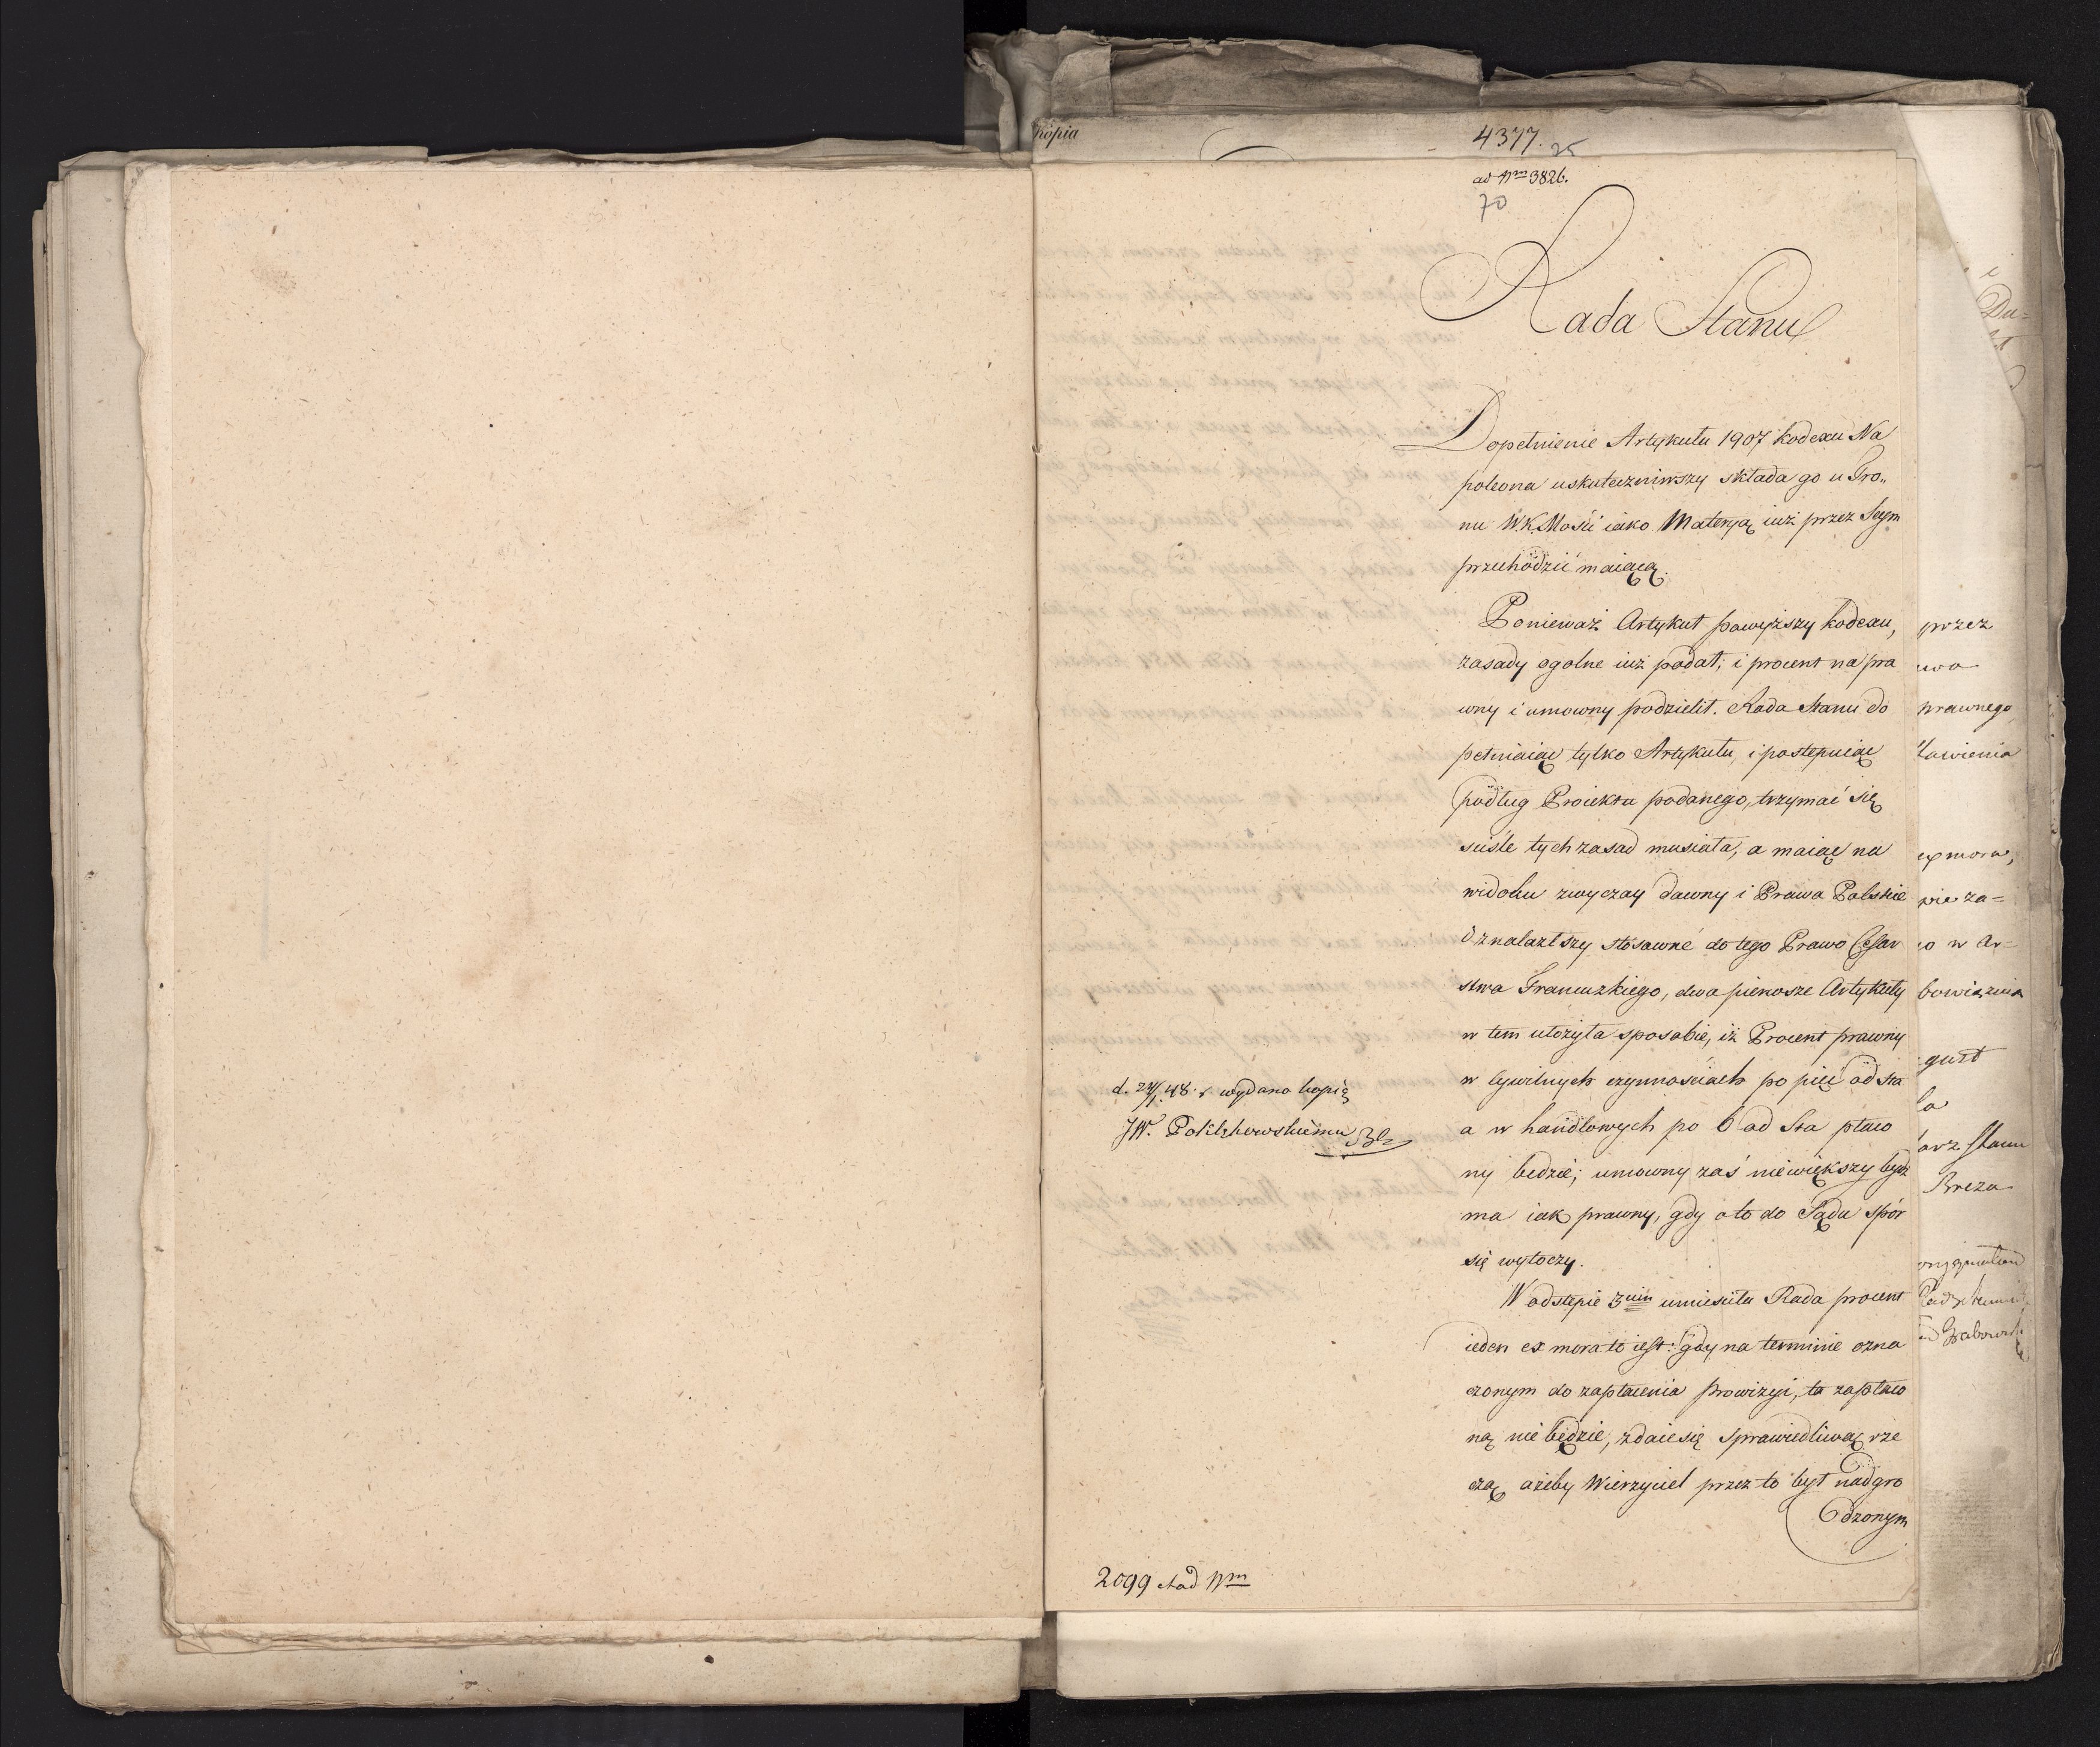 kópia
4377.
25
ad Nrm 3826.
70
Rada Stanu
Dopełnienie Artykułu 1907 kodexu Na
poleona uskuteczniwszy składa go u Tro„
nu W.K.Mości iako Materyą iuż przez Seym
przechodzić maiącą.
Ponieważ Artykuł powyższy kodexu,
zasady ogolne iuż podał; i procent na pra
wny i umowny podzielił. Rada Stanu do
pełniaiąc tylko Artykułu, i postępuiąc
podług Proiektu podanego, trzymać się
ściśle tych zasad musiała, a maiąc na
widoku zwyczay dawny i Prawa Polskie
znalazłszy stósowne do tego Prawo Cesar
stwa Francuzkiego, dwa pierwsze Artykuły
w tem ułożyła sposobie, iż Procent prawny
w Cywilnych czynnościach po pięć od sta
a w handlowych po 6 od sta płaco
ny będzie; umowny zaś niewiększy bydź
ma iak prawny, gdy o to do Sądu spór
się wytoczy.
W odstępie 3cim umieściła Rada procent
ieden ex mora to iest: gdy na terminie ozna
czonym do zapłacenia prowizyi, ta zapłaco
ną nie będzie, zdaie się sprawiedliwą rze
czą ażeby Wierzyciel przez to był nadgro
dzonym
d. 24/1.48. r wydano kopią
JW.
2099 Nrm
przez
prawnego
tawienia
ex mora,
wie za=
o w Ar=
bowiązuią
gust
la
arz stanu
Breza
Du=